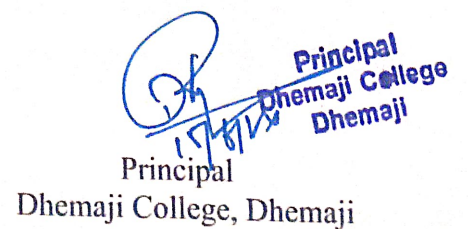 Principal
Dhemaji College
Dhemaji
Principal
Dhemaji College, Dhemaji